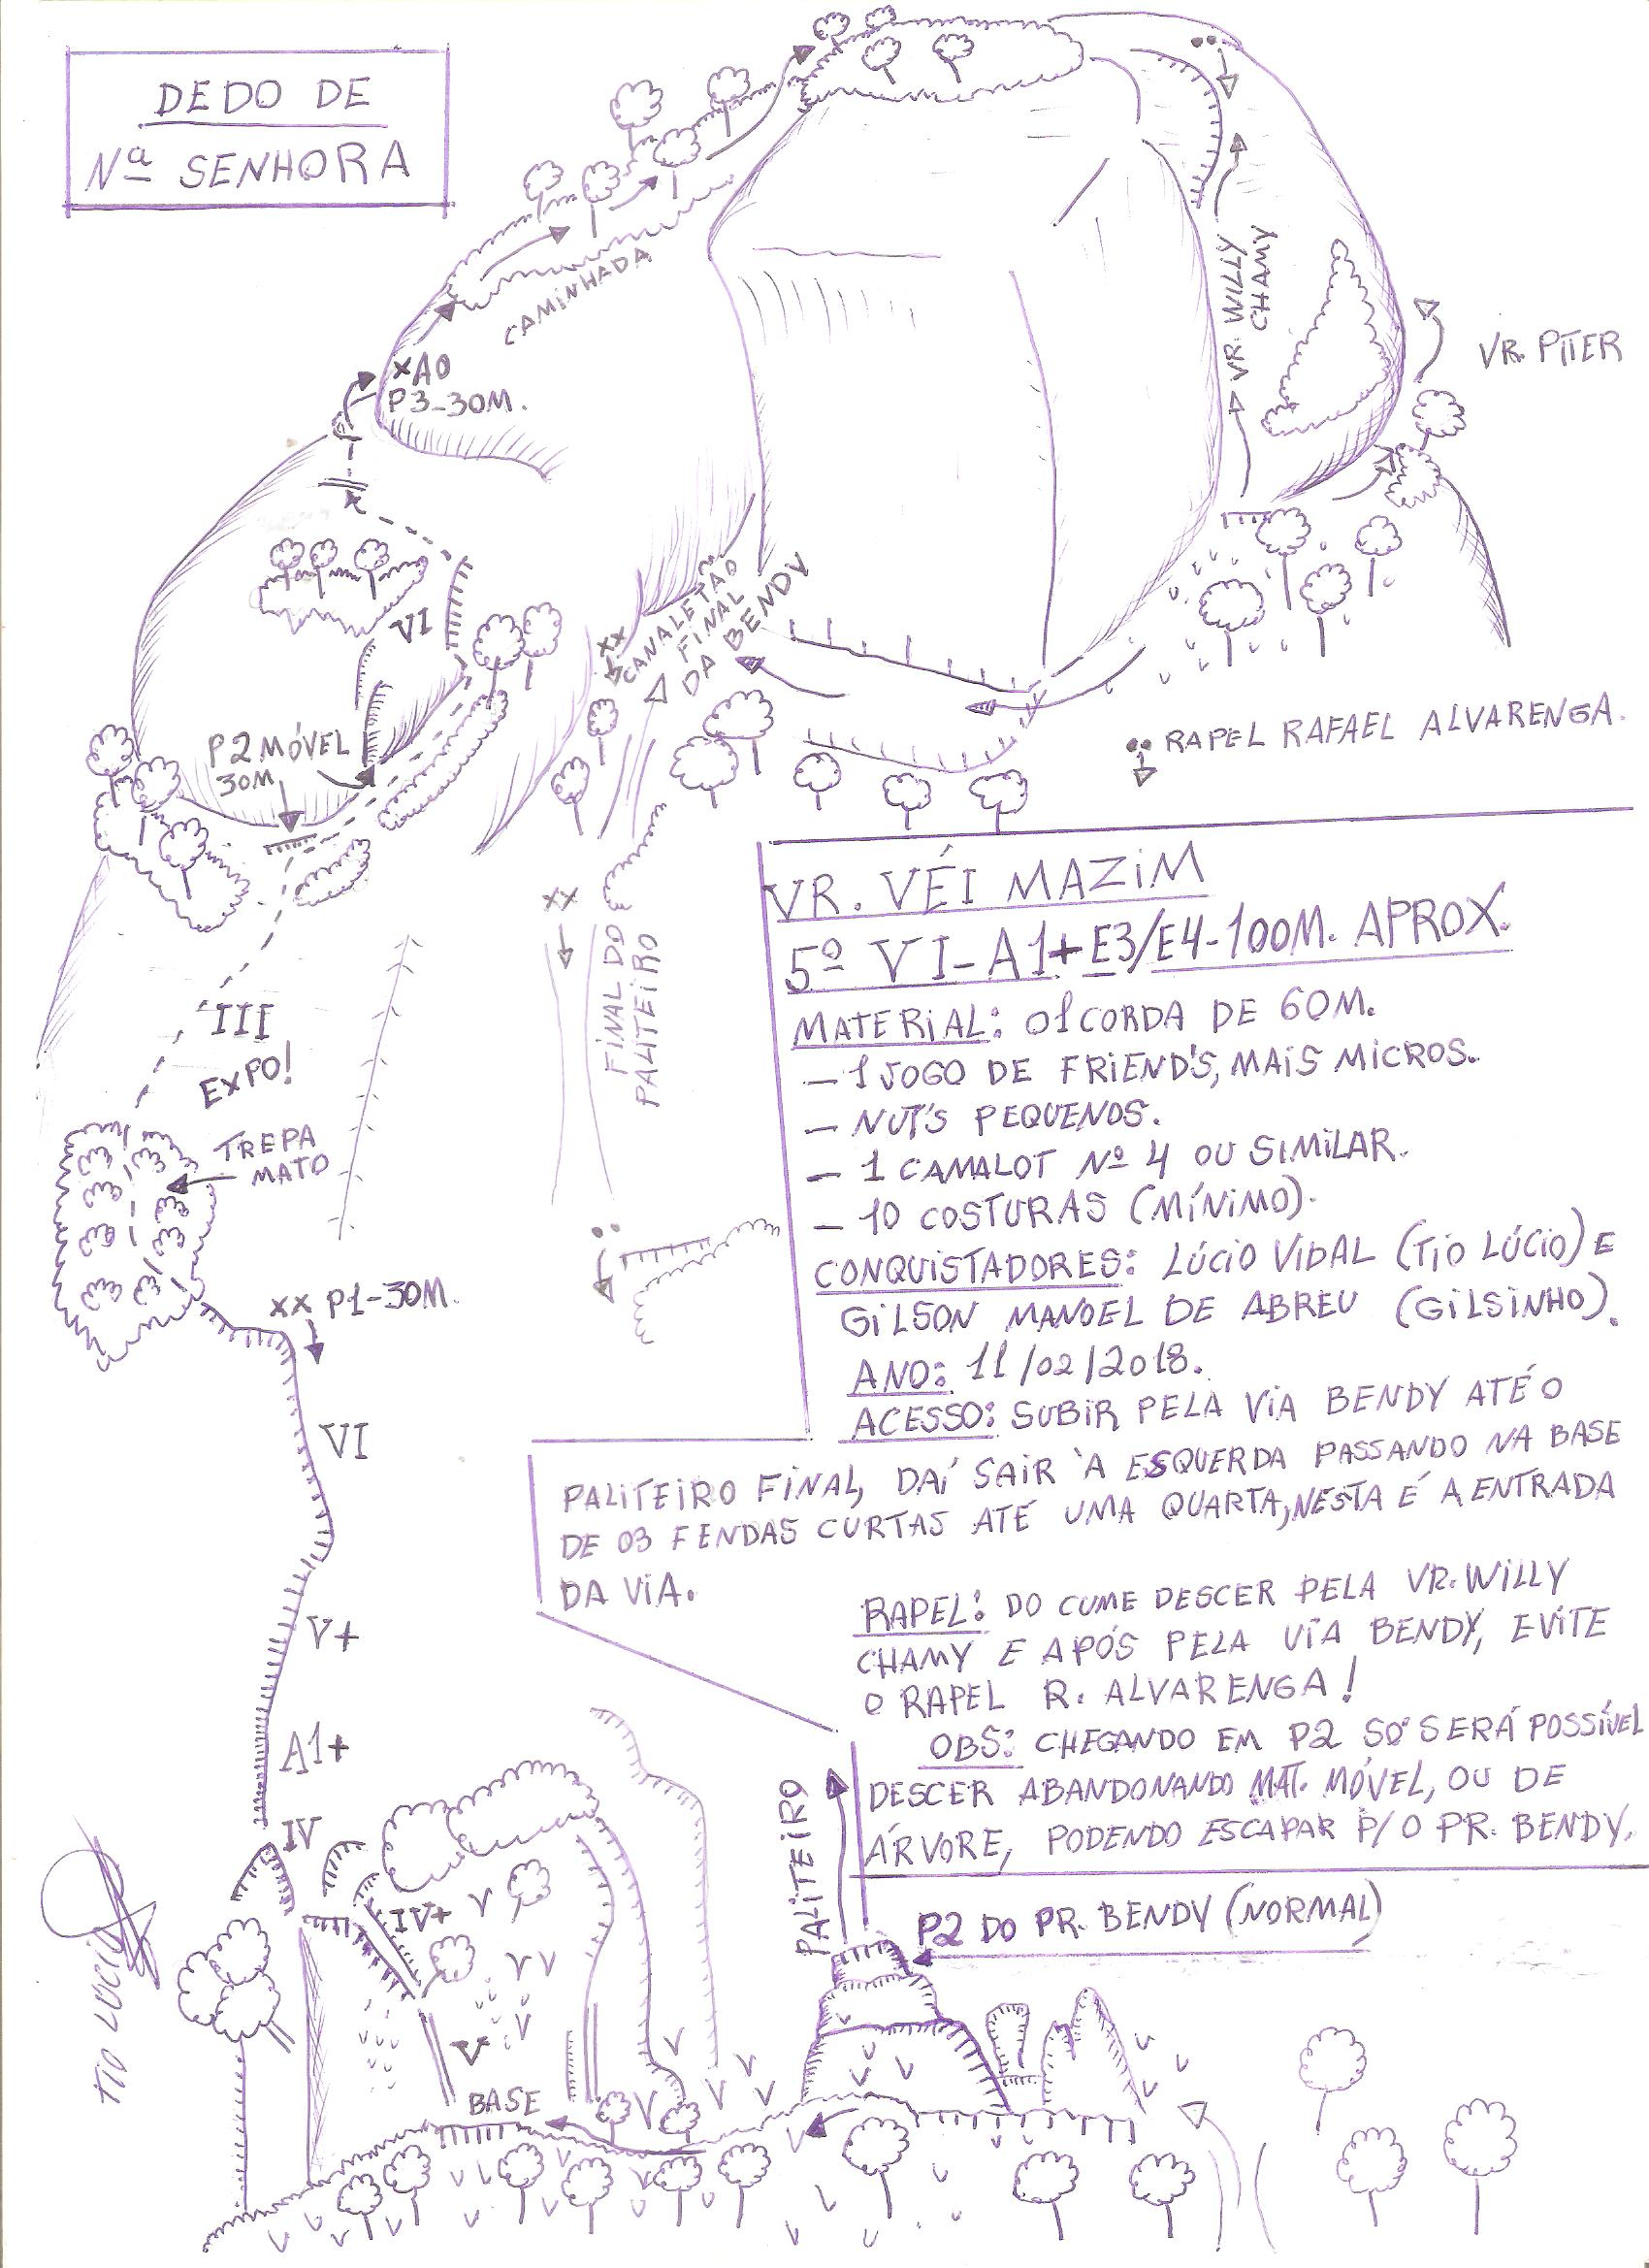 DEDO DE
Nª SENHORA
CAMINHADA
XA0
P3-30M.
VR. WILLY
CHAMY
VR. PITER
VI
XX
CANALETÃO
FINAL
DA BENDY
P2 MÓVEL
30M
RAPEL RAFAEL ALVARENGA.
XX
FINAL DO
PALITEIRO
III
EXPO!
TREPA
MATO
XX P1-30M.
VI
V+
A1+
IV
IV+
V
BASE
VR. VÉI MAZIM
5º VI-A1+E3/E4-100M. APROX.
MATERIAL: 01 CORDA DE 60M.
- 1 JOGO DE FRIEND'S, MAIS MICROS.
- NUT'S PEQUENOS.
- 1 CAMALOT Nº 4 OU SIMILAR.
- 10 COSTURAS (MÍNIMO).
CONQUISTADORES: LÚCIO VIDAL (TIO LÚCIO) E
GILSON MANOEL DE ABREU (GILSINHO).
ANO: 11/02/2018.
ACESSO: SUBIR PELA VIA BENDY ATÉ O
PALITEIRO FINAL, DAÍ SAIR À ESQUERDA PASSANDO NA BASE
DE 03 FENDAS CURTAS ATÉ UMA QUARTA, NESTA É A ENTRADA
DA VIA.
RAPEL: DO CUME DESCER PELA VR. WILLY
CHAMY E APÓS PELA VIA BENDY, EVITE
O RAPEL R. ALVARENGA!
OBS: CHEGANDO EM P2 SÓ SERÁ POSSÍVEL
DESCER ABANDONANDO MAT. MÓVEL, OU DE
ÁRVORE, PODENDO ESCAPAR P/ O PR. BENDY.
PALITEIRO
P2 DO PR. BENDY (NORMAL)
TIO LÚCIO